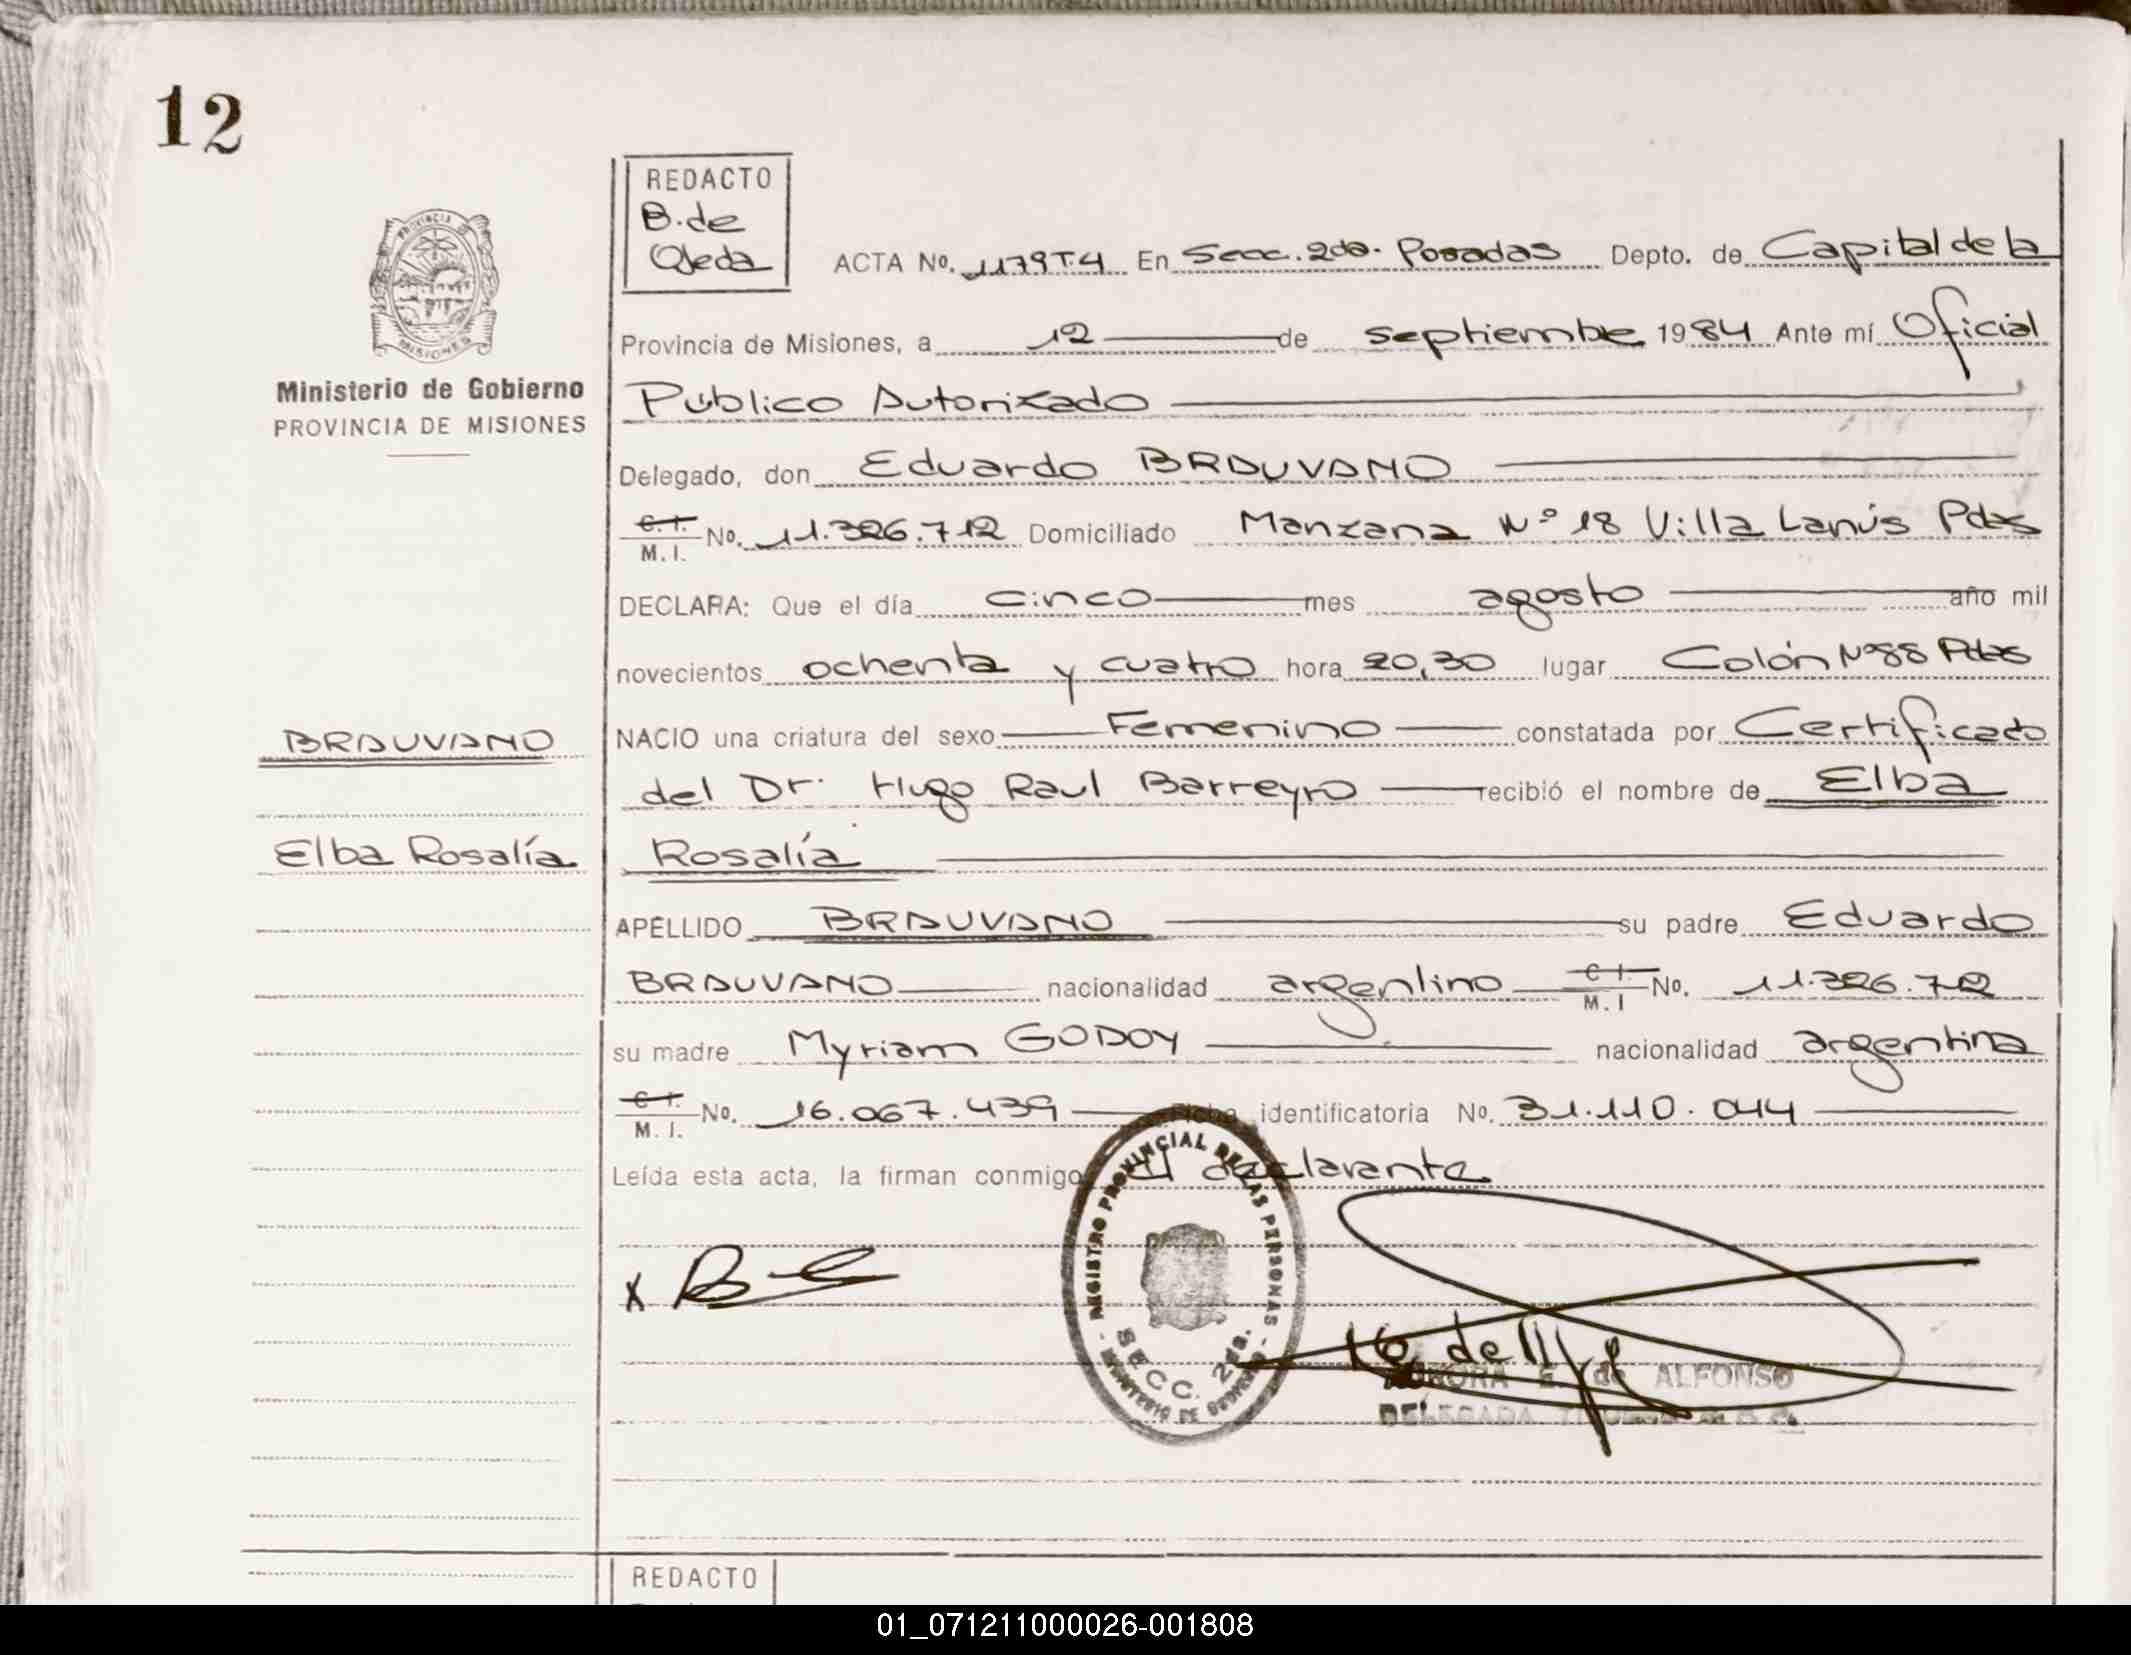 12
PROVINCIA
MISIONES
Ministerio de Gobierno
PROVINCIA DE MISIONES
REDACTO
B. de
Ojeda
ACTA No. 1179 T.4 En Secc. 2da. Posadas Depto. de Capital de la
Provincia de Misiones, a 12 de septiembre 1984 Ante mí Oficial
Público Autorizado
Delegado, don Eduardo BRAUVANO
C. I. / M. I. No. 11.326.712 Domiciliado Manzana Nº 18 Villa Lanús Pdas
DECLARA: Que el día cinco mes agosto año mil
novecientos ochenta y cuatro hora 20,30 lugar Colón Nº 88 Pdas
BRAUVANO
NACIO una criatura del sexo Femenino constatada por Certificado
del Dr. Hugo Raul Barreyro recibió el nombre de Elba
Elba Rosalía
Rosalía
APELLIDO BRAUVANO su padre Eduardo
BRAUVANO nacionalidad argentino C I. / M. I No. 11.326.712
su madre Myriam GODOY nacionalidad argentina
C I. / M. I. No. 16.067.439 Ficha identificatoria No. 31.110.044
Leída esta acta, la firman conmigo el declarante
REGISTRO PROVINCIAL DE LAS PERSONAS
SECC. 2da.
MINISTERIO DE GOBIERNO
x
E. de ALFONSO
DELEGADA
REDACTO
01_071211000026-001808